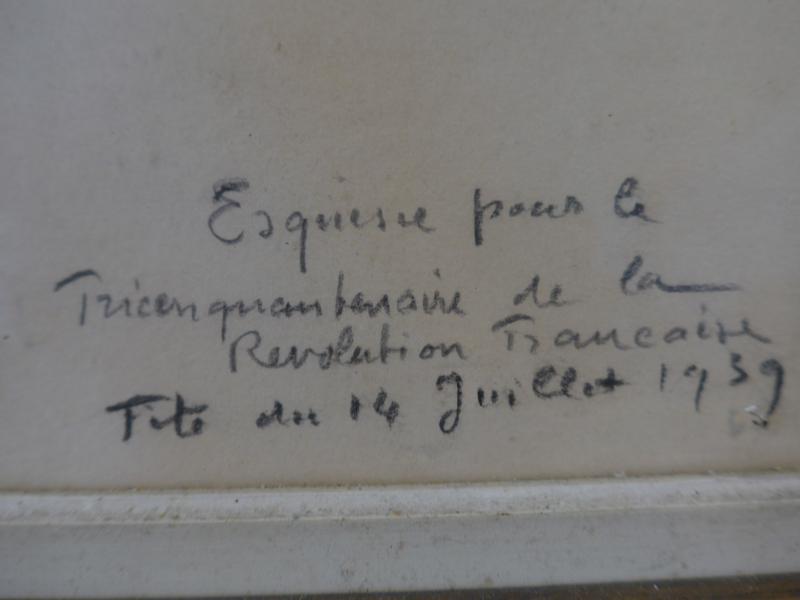 Esquisse pour le
Tricinquantenaire de la
Revolution Francaise
Fete du 14 Juillet 1939